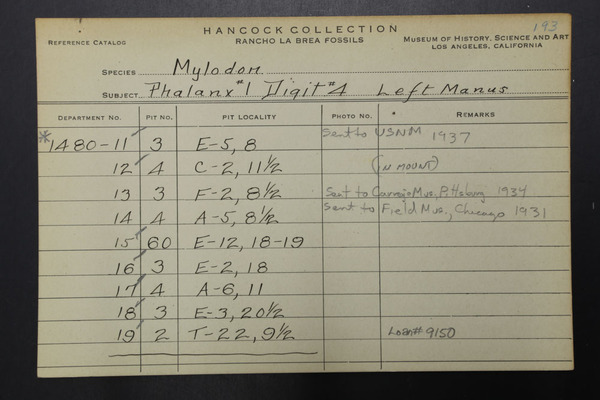 193
HANCOCK COLLECTION
REFERENCE CATALOG RANCHO LA BREA FOSSILS MUSEUM OF HISTORY, SCIENCE AND ART
LOS ANGELES, CALIFORNIA
SPECIES Mylodon
SUBJECT Phalanx #1 Digit #4 Left Manus
DEPARTMENT NO. PIT NO. PIT LOCALITY PHOTO NO. REMARKS
*1480-11 3 E-5, 8 Sent to USNM 1937
12 4 C-2, 11½ (IN MOUNT)
13 3 F-2, 8½ Sent to Carnegie Mus, Pittsburg 1934
14 4 A-5, 8½ Sent to Field Mus., Chicago 1931
15 60 E-12, 18-19
16 3 E-2, 18
17 4 A-6, 11
18 3 E-3, 20½
19 2 T-22, 9½ Loan# 9150